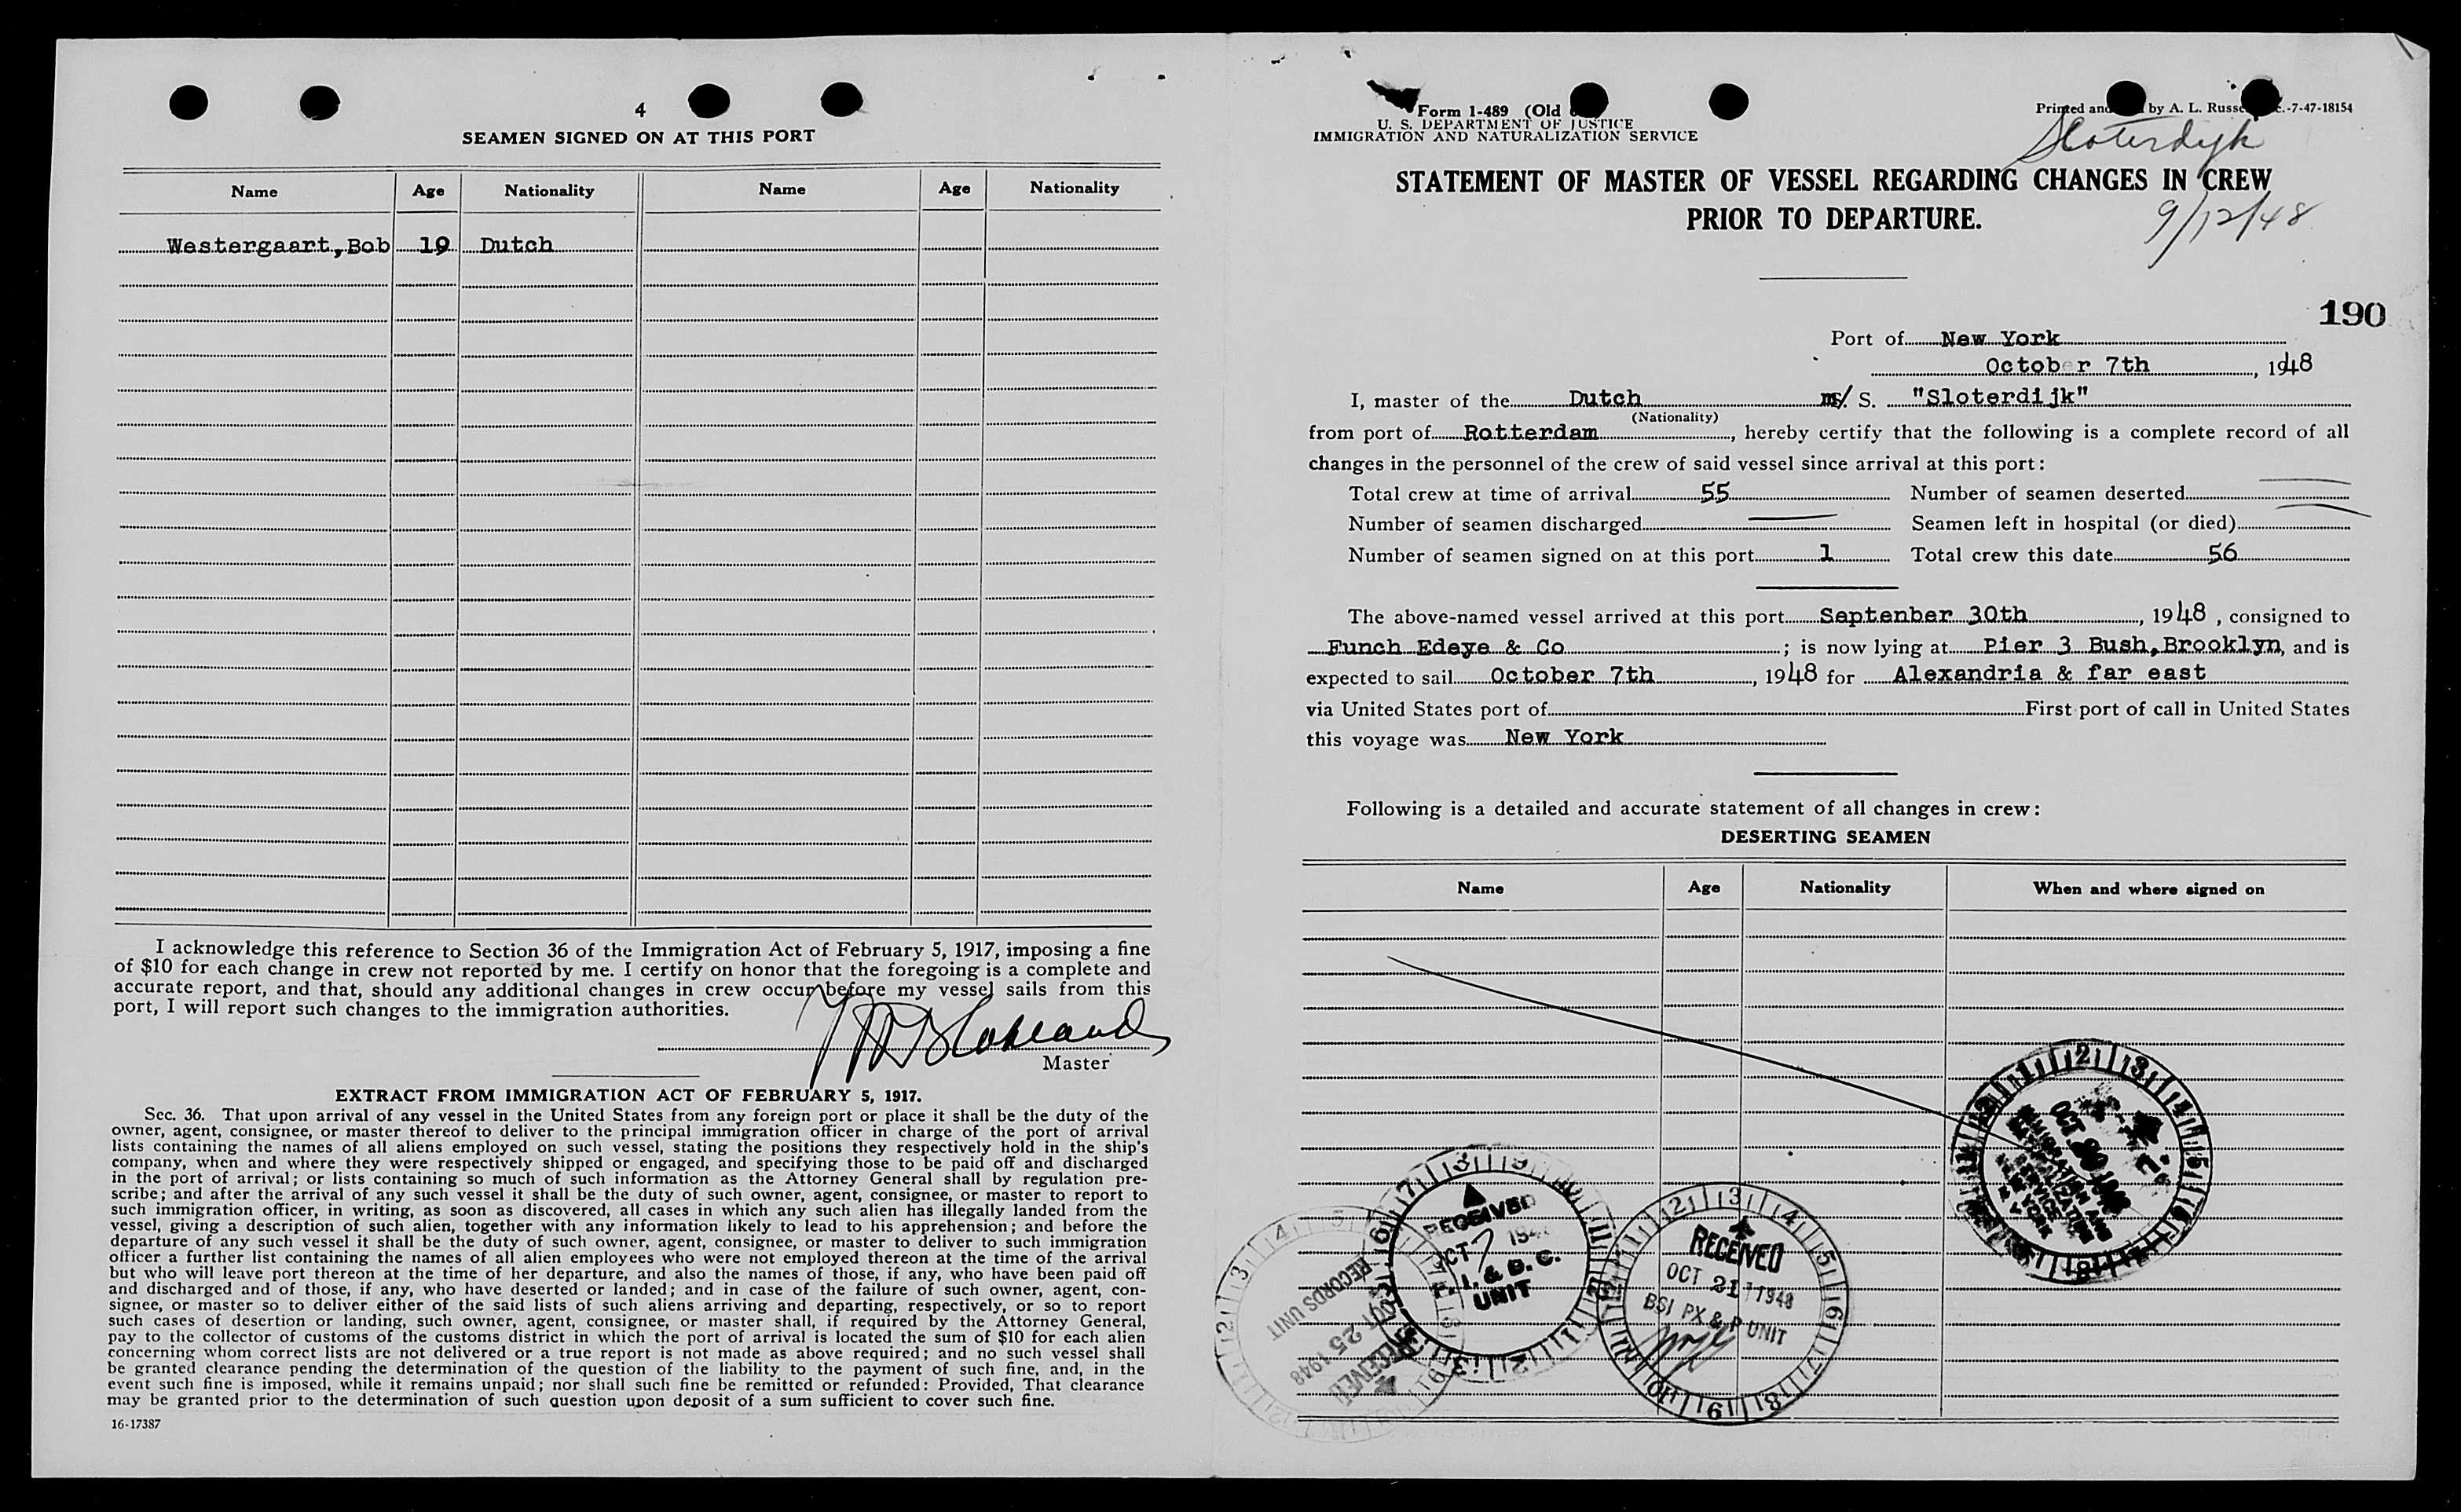 4
SEAMEN SIGNED ON AT THIS PORT
Name Age Nationality Name Age Nationality
Westergaart, Bob 19 Dutch
I acknowledge this reference to Section 36 of the Immigration Act of February 5, 1917, imposing a fine
of $10 for each change in crew not reported by me. I certify on honor that the foregoing is a complete and
accurate report, and that, should any additional changes in crew occur before my vessel sails from this
port, I will report such changes to the immigration authorities.
Master
EXTRACT FROM IMMIGRATION ACT OF FEBRUARY 5, 1917.
Sec. 36. That upon arrival of any vessel in the United States from any foreign port or place it shall be the duty of the
owner, agent, consignee, or master thereof to deliver to the principal immigration officer in charge of the port of arrival
lists containing the names of all aliens employed on such vessel, stating the positions they respectively hold in the ship's
company, when and where they were respectively shipped or engaged, and specifying those to be paid off and discharged
in the port of arrival; or lists containing so much of such information as the Attorney General shall by regulation pre-
scribe; and after the arrival of any such vessel it shall be the duty of such owner, agent, consignee, or master to report to
such immigration officer, in writing, as soon as discovered, all cases in which any such alien has illegally landed from the
vessel, giving a description of such alien, together with any information likely to lead to his apprehension; and before the
departure of any such vessel it shall be the duty of such owner, agent, consignee, or master to deliver to such immigration
officer a further list containing the names of all alien employees who were not employed thereon at the time of the arrival
but who will leave port thereon at the time of her departure, and also the names of those, if any, who have been paid off
and discharged and of those, if any, who have deserted or landed; and in case of the failure of such owner, agent, con-
signee, or master so to deliver either of the said lists of such aliens arriving and departing, respectively, or so to report
such cases of desertion or landing, such owner, agent, consignee, or master shall, if required by the Attorney General,
pay to the collector of customs of the customs district in which the port of arrival is located the sum of $10 for each alien
concerning whom correct lists are not delivered or a true report is not made as above required; and no such vessel shall
be granted clearance pending the determination of the question of the liability to the payment of such fine, and, in the
event such fine is imposed, while it remains unpaid; nor shall such fine be remitted or refunded: Provided, That clearance
may be granted prior to the determination of such question upon deposit of a sum sufficient to cover such fine.
16-17387
Form 1-489 (Old
U. S. DEPARTMENT OF JUSTICE
IMMIGRATION AND NATURALIZATION SERVICE
Printed and by A. L. -7-47-18154
Sloterdyk
STATEMENT OF MASTER OF VESSEL REGARDING CHANGES IN CREW
PRIOR TO DEPARTURE.
9/12/48
190
Port of New York
October 7th, 1948
I, master of the Dutch m/ S. "Sloterdijk"
(Nationality)
from port of Rotterdam, hereby certify that the following is a complete record of all
changes in the personnel of the crew of said vessel since arrival at this port:
Total crew at time of arrival 55 Number of seamen deserted
Number of seamen discharged Seamen left in hospital (or died)
Number of seamen signed on at this port 1 Total crew this date 56
The above-named vessel arrived at this port Septenber 30th, 1948, consigned to
Funch Edeye & Co; is now lying at Pier 3 Bush, Brooklyn, and is
expected to sail October 7th, 1948 for Alexandria & far east
via United States port of First port of call in United States
this voyage was New York
Following is a detailed and accurate statement of all changes in crew:
DESERTING SEAMEN
Name Age Nationality When and where signed on
RECEIVED
OCT 7
I. & D. C.
UNIT
RECEIVED
OCT 21 1948
BSI PX & P UNIT
RECEIVED
OCT 25 1948
RECORDS UNIT
OCT
IMMIGRATION AND
NATURALIZATION
SERVICE
NEW YORK
N. Y.